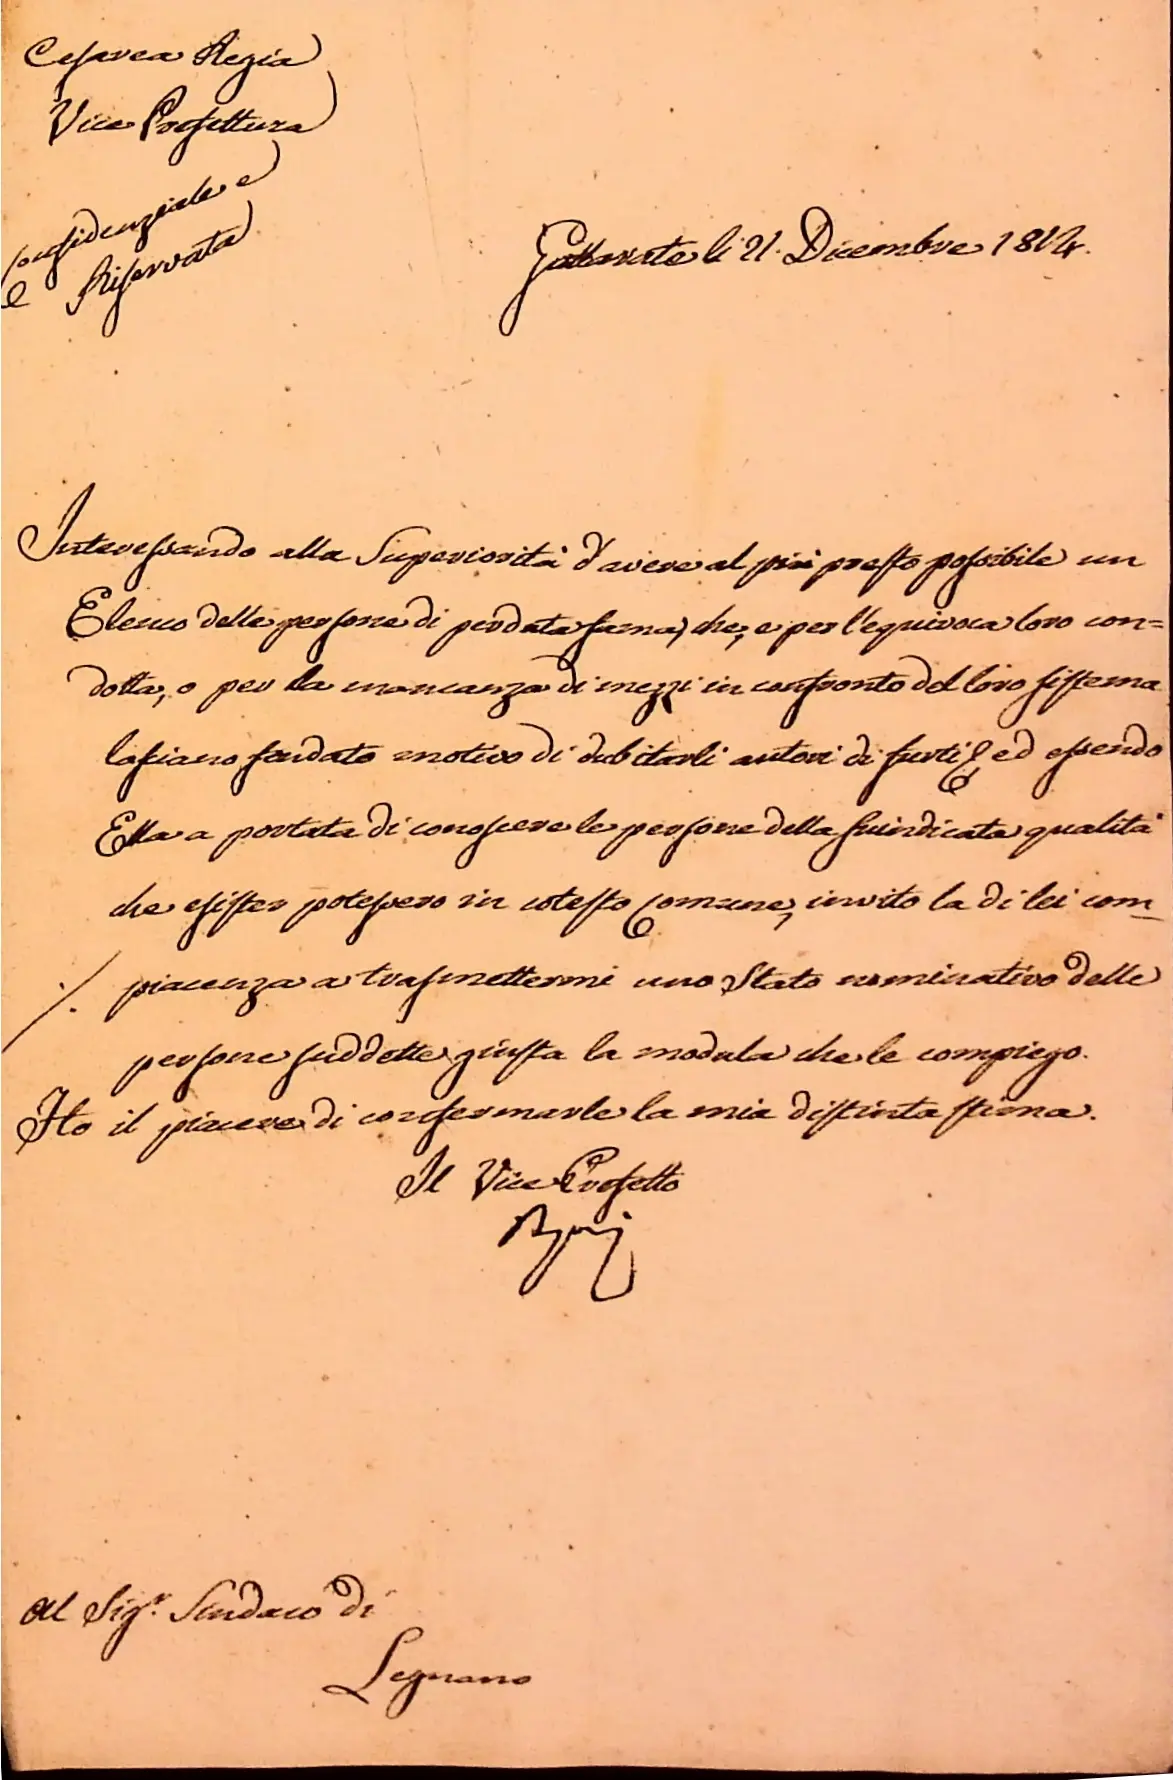 Cesarea Regia
Vice Prefettura
Confidenziale e
Riservata
Gallarate li 21. Dicembre 1814.
Interessando alla Superiorità d'avere al più presto possibile un
Elenco delle persone di perduta fama, che, e per l'equivoca loro con=
dotta, o per la mancanza di mezzi in confronto del loro sistema
lasciano fondato motivo di dubitarli autori di furti, ed essendo
Ella a portata di conoscere le persone della suindicata qualità
che esister potessero in cotesto Comune, invito la di lei com_
piacenza a trasmettermi uno Stato nominativo delle
persone suddette giusta la modula che le compiego.
Ho il piacere di confermarle la mia distinta stima.
Il Vice Prefetto
Al Sigr. Sindaco di
Legnano